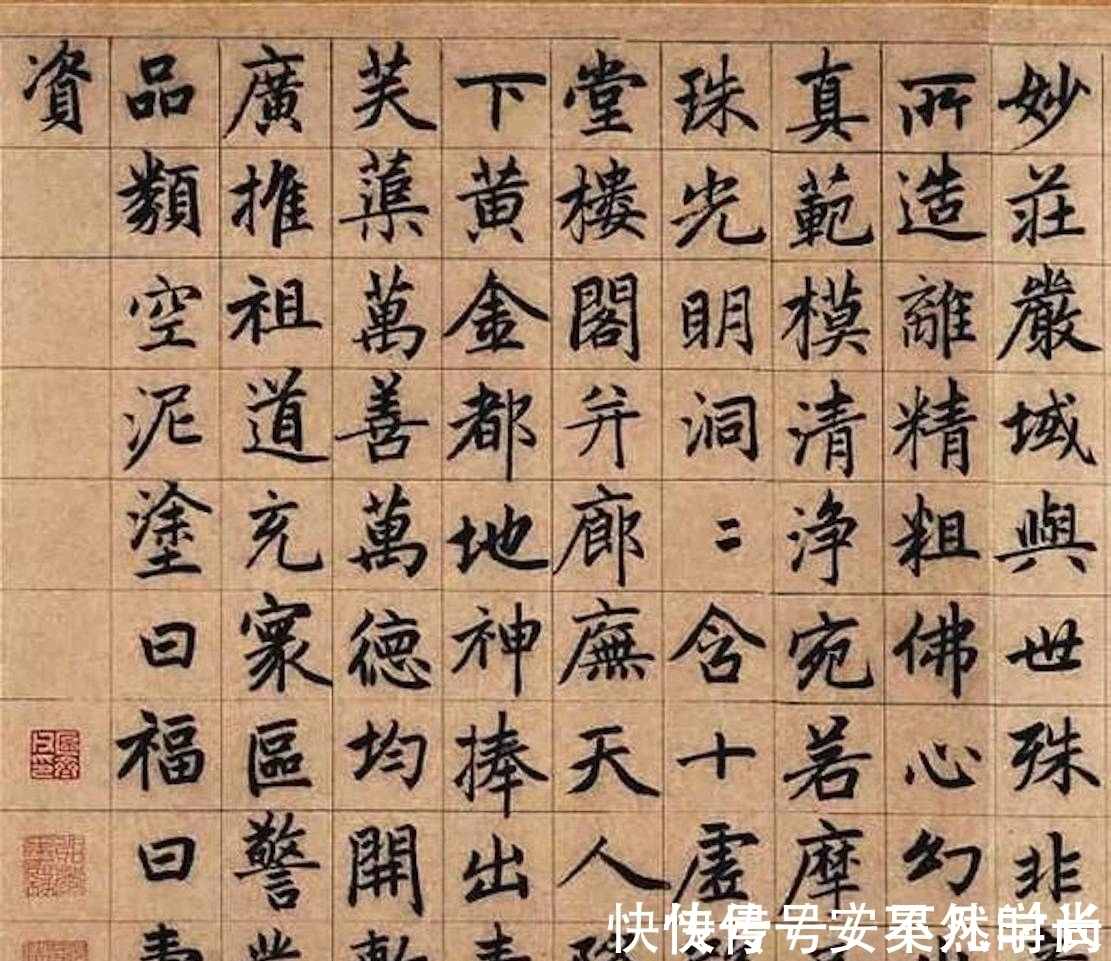 妙莊嚴域與世殊非
所造離精粗佛心幻
真範模清淨宛若摩
珠光明洞二含十虛
堂樓閣并廊廡天人
下黄金都地神捧出
芙蕖萬善萬德均開
廣推祖道充寰區警
品類空泥塗曰福曰壽
資